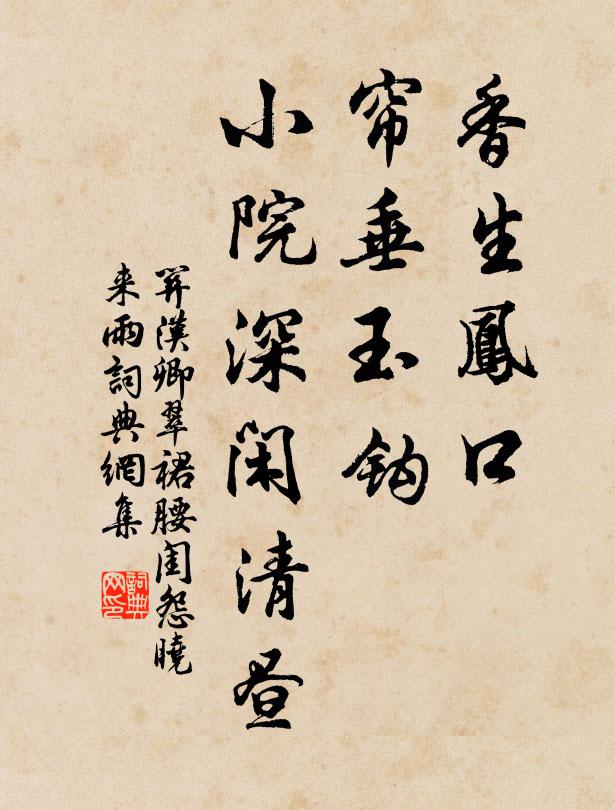 香生鳳口
帘垂玉鈎
小院深闲清昼
關漢卿翠裙腰闺怨曉
来雨詞典網集
詞典网印